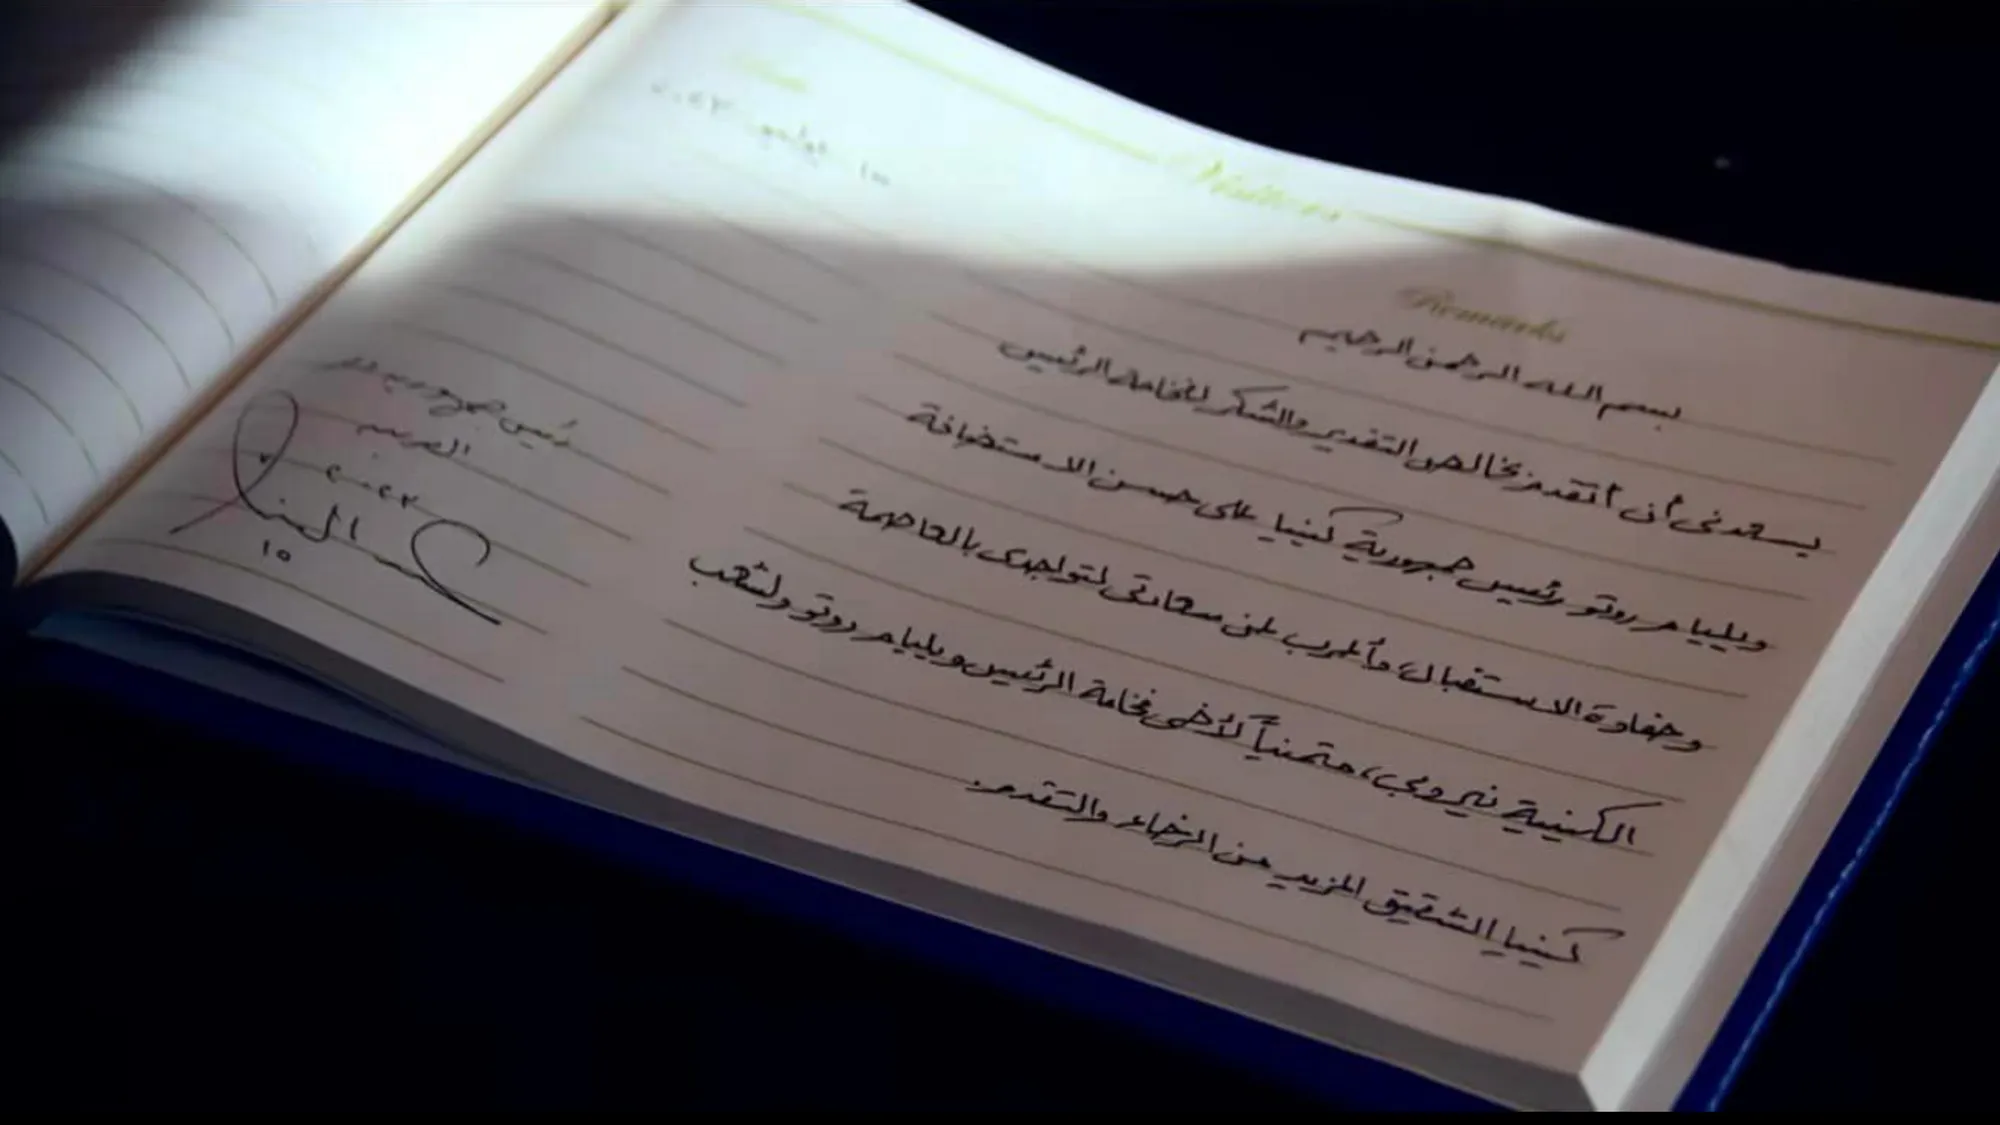 Visitors
١٥ يوليو ٢٠٢٣
Remarks
بسم الله الرحمن الرحيم
يسعدني أن أتقدم بخالص التقدير والشكر لفخامة الرئيس
ويليام روتو رئيس جمهورية كينيا على حسن الاستضافة
وحفاوة الاستقبال، وأعرب عن سعادتي لتواجدي بالعاصمة
الكينية نيروبي، متمنياً لأخي فخامة الرئيس ويليام روتو ولشعب
كينيا الشقيق المزيد من الرخاء والتقدم.
رئيس جمهورية مصر
العربية
٢٠٢٣
١٥